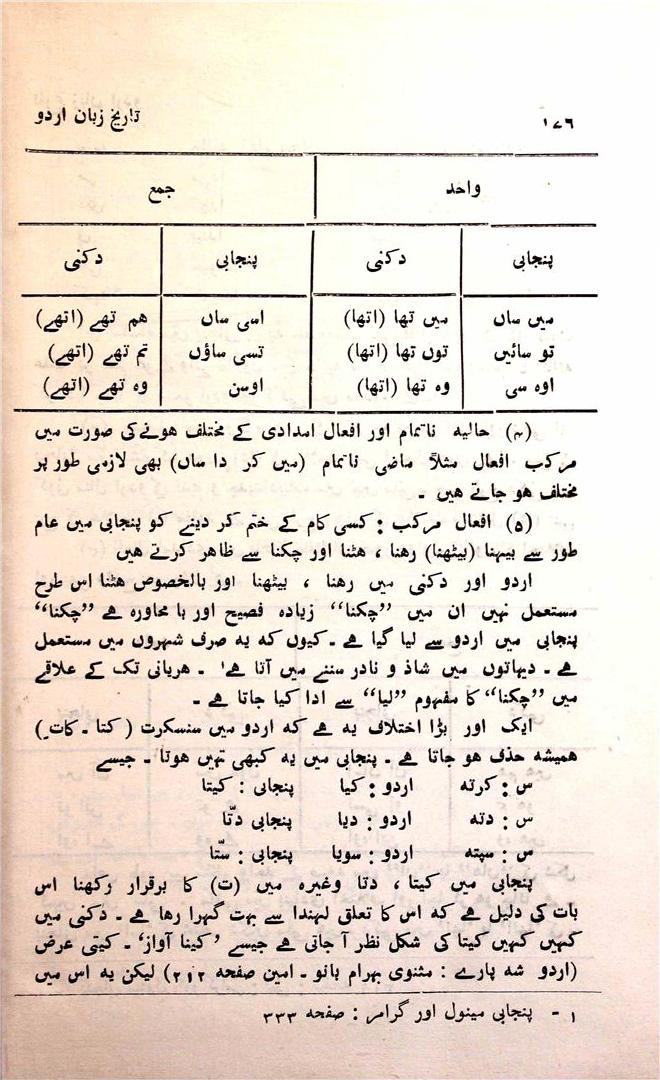 ۱۷۶ تاریخ زبان اردو
واحد جمع
پنجابی دکنی پنجابی دکنی
میں ساں میں تھا (اتھا) اسی ساں ھم تھے (اتھے)
تو سائیں توں تھا (اتھا) تسی ساؤں تم تھے (اتھے)
اوہ سی وہ تھا (اتھا) اوسن وہ تھے (اتھے)
(۴) حالیہ ناتمام اور افعال امدادی کے مختلف ھونے کی صورت میں
مرکب افعال مثلاً ماضی ناتمام (میں کر دا ساں) بھی لازمی طور پر
مختلف ھو جاتے ھیں ۔
(۵) افعال مرکب : کسی کام کے ختم کر دینے کو پنجابی میں عام
طور سے بیہنا (بیٹھنا) رھنا ، ھٹنا اور چکنا سے ظاھر کرتے ھیں
اردو اور دکنی میں رھنا ، بیٹھنا اور بالخصوص ھٹنا اس طرح
مستعمل نہیں ان میں ”چکنا“ زیادہ فصیح اور با محاورہ ھے ”چکنا“
پنجابی میں اردو سے لیا گیا ھے ۔ کیوں کہ یہ صرف شہروں میں مستعمل
ھے ۔ دیہاتوں میں شاذ و نادر سننے میں آتا ھے۱ ۔ ھریانی تک کے علاقے
میں ”چکنا“ کا مفہوم ”لیا“ سے ادا کیا جاتا ھے ۔
ایک اور بڑا اختلاف یہ ھے کہ اردو میں سنسکرت ( کتا ۔ کات)
ھمیشہ حذف ھو جاتا ھے ۔ پنجابی میں یہ کبھی نہیں ھوتا ۔ جیسے
س : کرتہ اردو : کیا پنجابی : کیتا
س : دتہ اردو : دیا پنجابی دتّا
س : سپتہ اردو : سویا پنجابی : ستّا
پنجابی میں کیتا ، دتا وغیرہ میں (ت) کا برقرار رکھنا اس
بات کی دلیل ھے کہ اس کا تعلق لہندا سے بہت گہرا رھا ھے ۔ دکنی میں
کہیں کہیں کیتا کی شکل نظر آ جاتی ھے جیسے ’کیتا آواز‘ ۔ کیتی عرض
(اردو شہ پارے : مثنوی بہرام بانو ۔ امین صفحہ ۲۱۲) لیکن یہ اس میں
۱ ۔ پنجابی مینول اور گرامر : صفحہ ۳۳۳